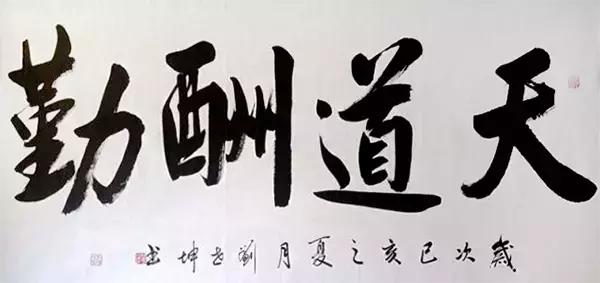 天道酬勤
歲次已亥之夏月劉志坤书